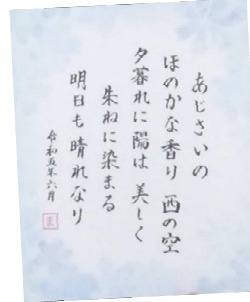 あじさいの
ほのかな香り 西の空
夕暮れに陽は 美しく
朱ねに染まる
明日も晴れなり
令和五年六月